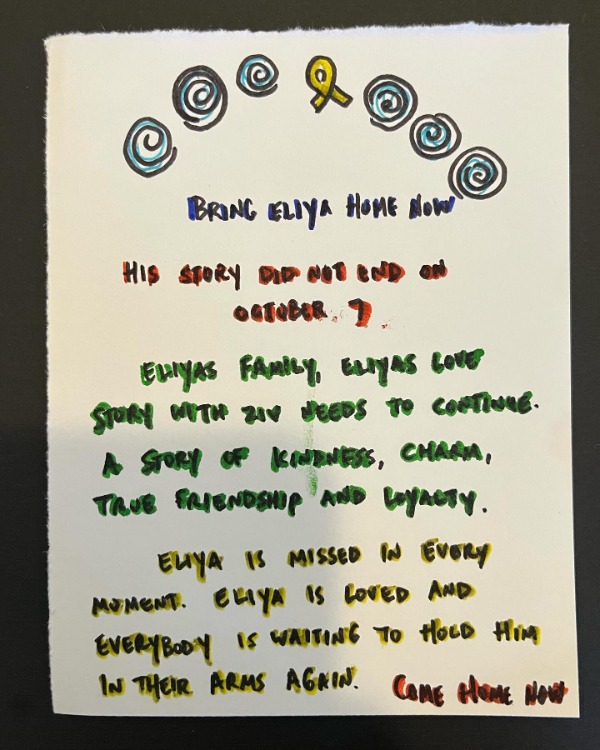 BRING ELIYA HOME NOW
HIS STORY DID NOT END ON
OCTOBER 7
ELIYAS FAMILY, ELIYAS LOVE
STORY WITH ZIV NEEDS TO CONTINUE.
A STORY OF KINDNESS, CHARM,
TRUE FRIENDSHIP AND LOYALTY.
ELIYA IS MISSED IN EVERY
MOMENT. ELIYA IS LOVED AND
EVERYBODY IS WAITING TO HOLD HIM
IN THEIR ARMS AGAIN. COME HOME NOW